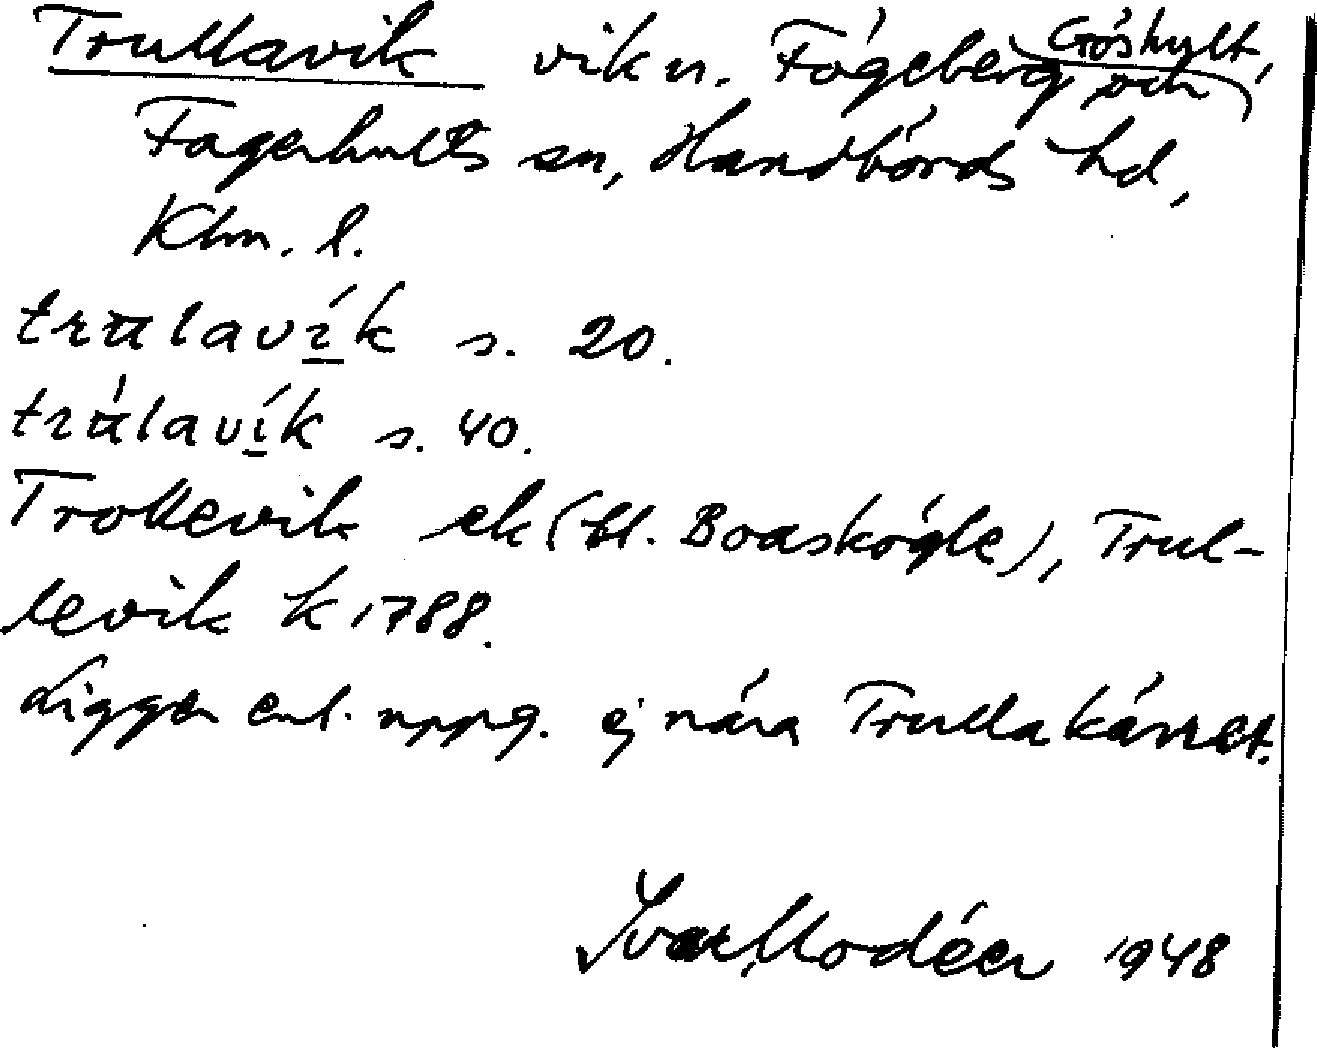 Trullavik vik u. Fågeberg och Göshult,
Fagerhults sn, Handbörds hd,
Klm. l.
trulavík s. 20.
trúlavík s. 40.
Trollevik ek (bl. Boaskögle), Trul-
levik k 1788.
Ligger enl. uppg. ej nära Trullakärret.
Ivar Modéer 1948